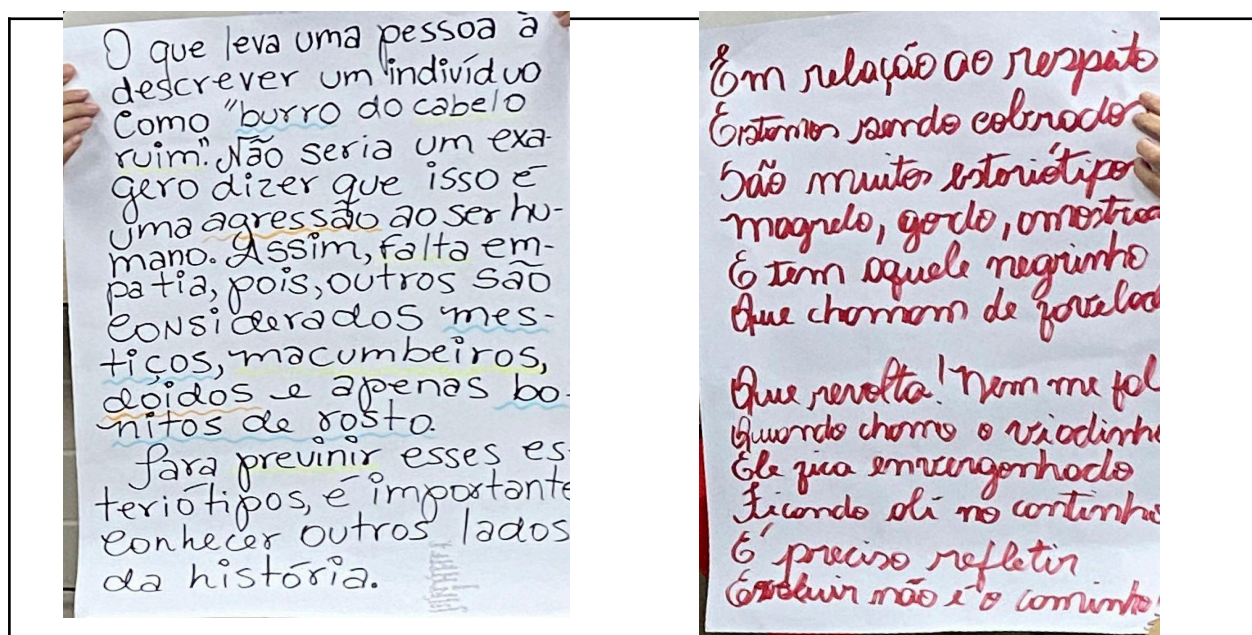 O que leva uma pessoa à
descrever um indivíduo
como "burro do cabelo
ruim". Não seria um exa-
gero dizer que isso é
uma agressão ao ser hu-
mano. Assim, falta em-
patia, pois, outros são
considerados mes-
tiços, macumbeiros,
doidos e apenas bo-
nitos de rosto.
Para previnir esses es
teriótipos, é importante
conhecer outros lados
da história.
Em relação ao respeito
Estamos sendo cobrado
São muitos esteriótipo
magrelo, gordo, amostra
E tem aquele negrinho
Que chamam de favelad
Que revolta! Nem me fal
Quando chama o viadinh
Ele fica envergonhado
Ficando ali no cantinho
É preciso refletir
Excluir não é o caminho